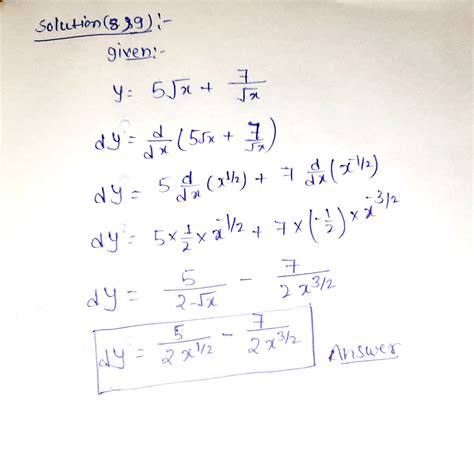 Solution(8 & 9):-
given:-
y = 5√x + 7/√x
dy = d/dx (5√x + 7/√x)
dy = 5 d/dx (x^1/2) + 7 d/dx (x^-1/2)
dy = 5 × 1/2 × x^-1/2 + 7 × (-1/2) × x^-3/2
dy = 5/2√x - 7/2x^3/2
dy = 5/2x^1/2 - 7/2x^3/2
Answer